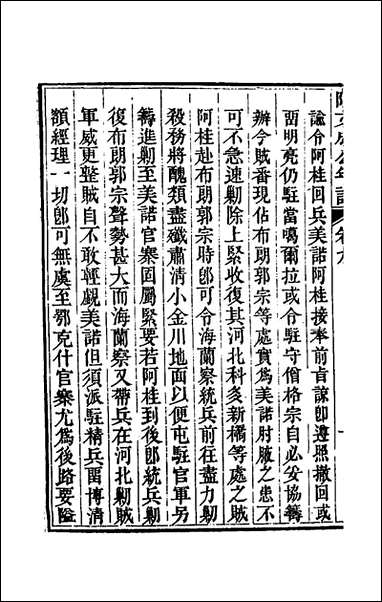 阿文成公年譜 卷九
諭令阿桂回兵美諾阿桂接奉前旨諒卽遵照撤回或
畱明亮仍駐當噶爾拉或令駐守僧格宗自必妥協籌
辦今賊番現佔布朗郭宗等處實爲美諾肘腋之患不
可不急速剿除上緊收復其河北科多新橋等處之賊
阿桂赴布朗郭宗時卽可令海蘭察統兵前往盡力剿
殺務將醜類盡殲肅清小金川地面以便屯駐官軍另
籌進剿至美諾官寨固屬緊要若阿桂到後卽統兵剿
復布朗郭宗聲勢甚大而海蘭察又帶兵在河北剿賊
軍威更整賊自不敢輕覷美諾但須派駐精兵畱博清
額經理一切卽可無虞至鄂克什官寨尤爲後路要隘